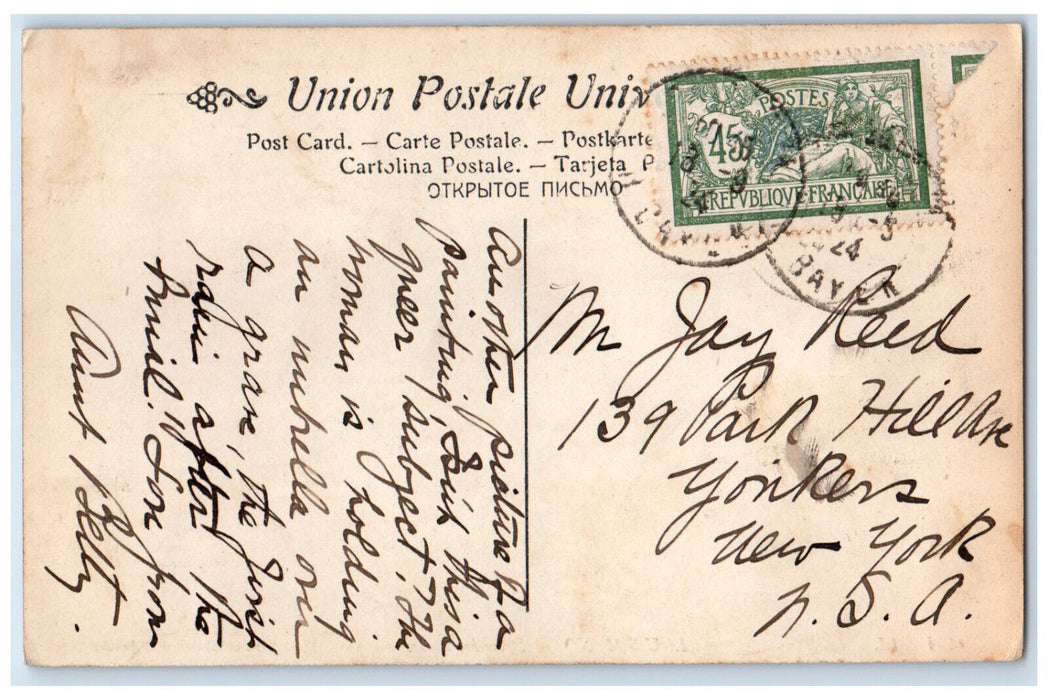 Union Postale Univ
Post Card. — Carte Postale. — Postkarte
Cartolina Postale. — Tarjeta P
ОТКРЫТОЕ ПИСЬМО
POSTES
45
REPVBLIQVE FRANÇAISE
24
BAYER
Another picture of a
painting, Isn't this a
queer subject? The
woman is holding
an umbrella over
a grave, the first
rain after the
burial. Love from
Aunt Betty.
Mr Jay Reed
139 Park Hill Ave
Yonkers
New York
U.S.A.